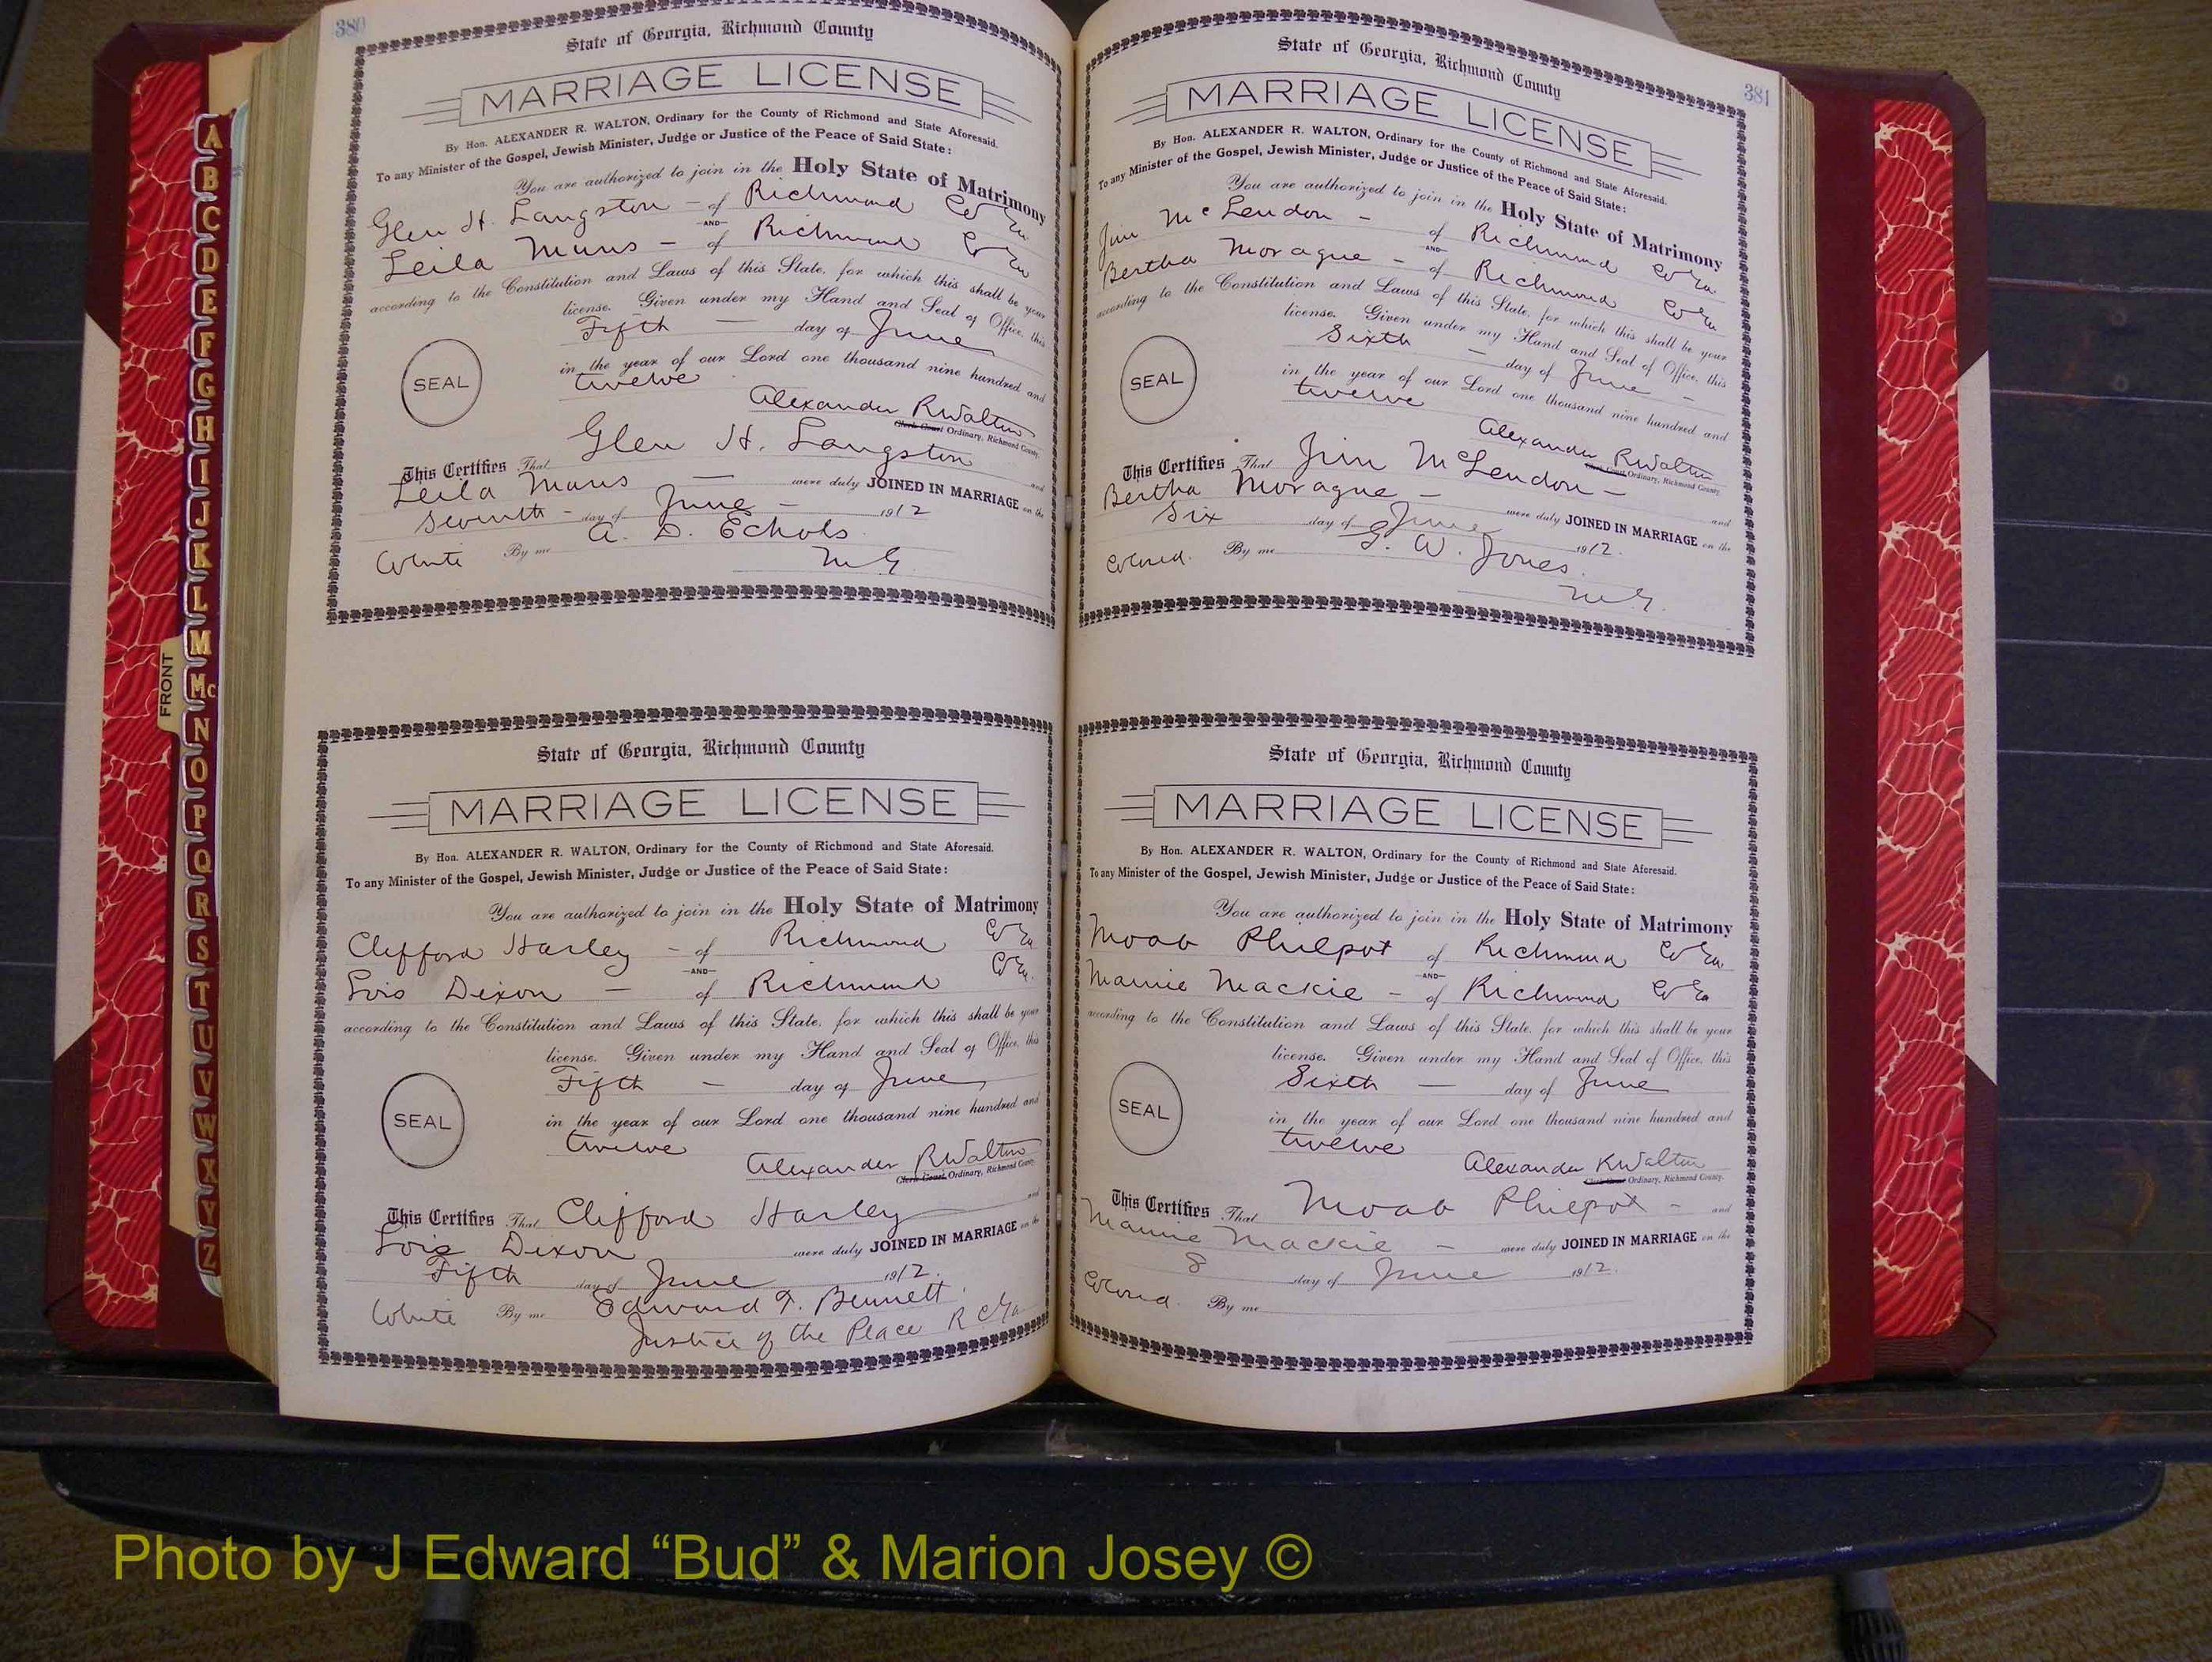 380
State of Georgia, Richmond County
MARRIAGE LICENSE
By Hon. ALEXANDER R. WALTON, Ordinary for the County of Richmond and State Aforesaid.
To any Minister of the Gospel, Jewish Minister, Judge or Justice of the Peace of Said State:
You are authorized to join in the Holy State of Matrimony
Glen H. Langston - of Richmond Co Ga
-AND-
Leila Maris - of Richmond Co Ga
according to the Constitution and Laws of this State, for which this shall be your
license. Given under my Hand and Seal of Office, this
Fifth - day of June
SEAL
in the year of our Lord one thousand nine hundred and
twelve
Alexander R Walton
Clerk Court Ordinary, Richmond County.
This Certifies That Glen H. Langston and
Leila Maris - were duly JOINED IN MARRIAGE on the
Seventh - day of June - 1912
White By me A. D. Echols
M G.
State of Georgia, Richmond County
MARRIAGE LICENSE
By Hon. ALEXANDER R. WALTON, Ordinary for the County of Richmond and State Aforesaid.
To any Minister of the Gospel, Jewish Minister, Judge or Justice of the Peace of Said State:
You are authorized to join in the Holy State of Matrimony
Clifford Harley - of Richmond Co Ga
-AND-
Lois Dixon - of Richmond Co Ga.
according to the Constitution and Laws of this State, for which this shall be your
license. Given under my Hand and Seal of Office, this
Fifth - day of June
SEAL
in the year of our Lord one thousand nine hundred and
twelve
Alexander R Walton
Clerk Court Ordinary, Richmond County
This Certifies That Clifford Harley and
Lois Dixon were duly JOINED IN MARRIAGE on the
Fifth day of June 1912.
White By me Edward T. Bennett
Justice of the Peace R C Ga
381
State of Georgia, Richmond County
MARRIAGE LICENSE
By Hon. ALEXANDER R. WALTON, Ordinary for the County of Richmond and State Aforesaid.
To any Minister of the Gospel, Jewish Minister, Judge or Justice of the Peace of Said State:
You are authorized to join in the Holy State of Matrimony
Jim McLendon - of Richmond Co Ga.
-AND-
Bertha Moragne - of Richmond Co Ga
according to the Constitution and Laws of this State, for which this shall be your
license. Given under my Hand and Seal of Office, this
Sixth - day of June -
SEAL
in the year of our Lord one thousand nine hundred and
twelve
Alexander R Walton
Clerk Court Ordinary, Richmond County
This Certifies That Jim McLendon - and
Bertha Moragne - were duly JOINED IN MARRIAGE on the
Six day of June 1912.
Colored. By me W. Jones.
M G.
State of Georgia, Richmond County
MARRIAGE LICENSE
By Hon. ALEXANDER R. WALTON, Ordinary for the County of Richmond and State Aforesaid.
To any Minister of the Gospel, Jewish Minister, Judge or Justice of the Peace of Said State:
You are authorized to join in the Holy State of Matrimony
Moab Philpot of Richmond Co Ga
-AND-
Mamie Mackie - of Richmond Co Ga
according to the Constitution and Laws of this State, for which this shall be your
license. Given under my Hand and Seal of Office, this
Sixth - day of June
SEAL
in the year of our Lord one thousand nine hundred and
twelve
Alexander R Walton
Clerk Court Ordinary, Richmond County.
This Certifies That Moab Philpot - and
Mamie Mackie - were duly JOINED IN MARRIAGE on the
8 day of June 1912.
Colored. By me
FRONT
A
B
C
D
E
F
G
H
I
J
K
L
M
Mc
N
O
P
Q
R
S
T
U
V
W
X
Y
Z
Photo by J Edward “Bud” & Marion Josey ©